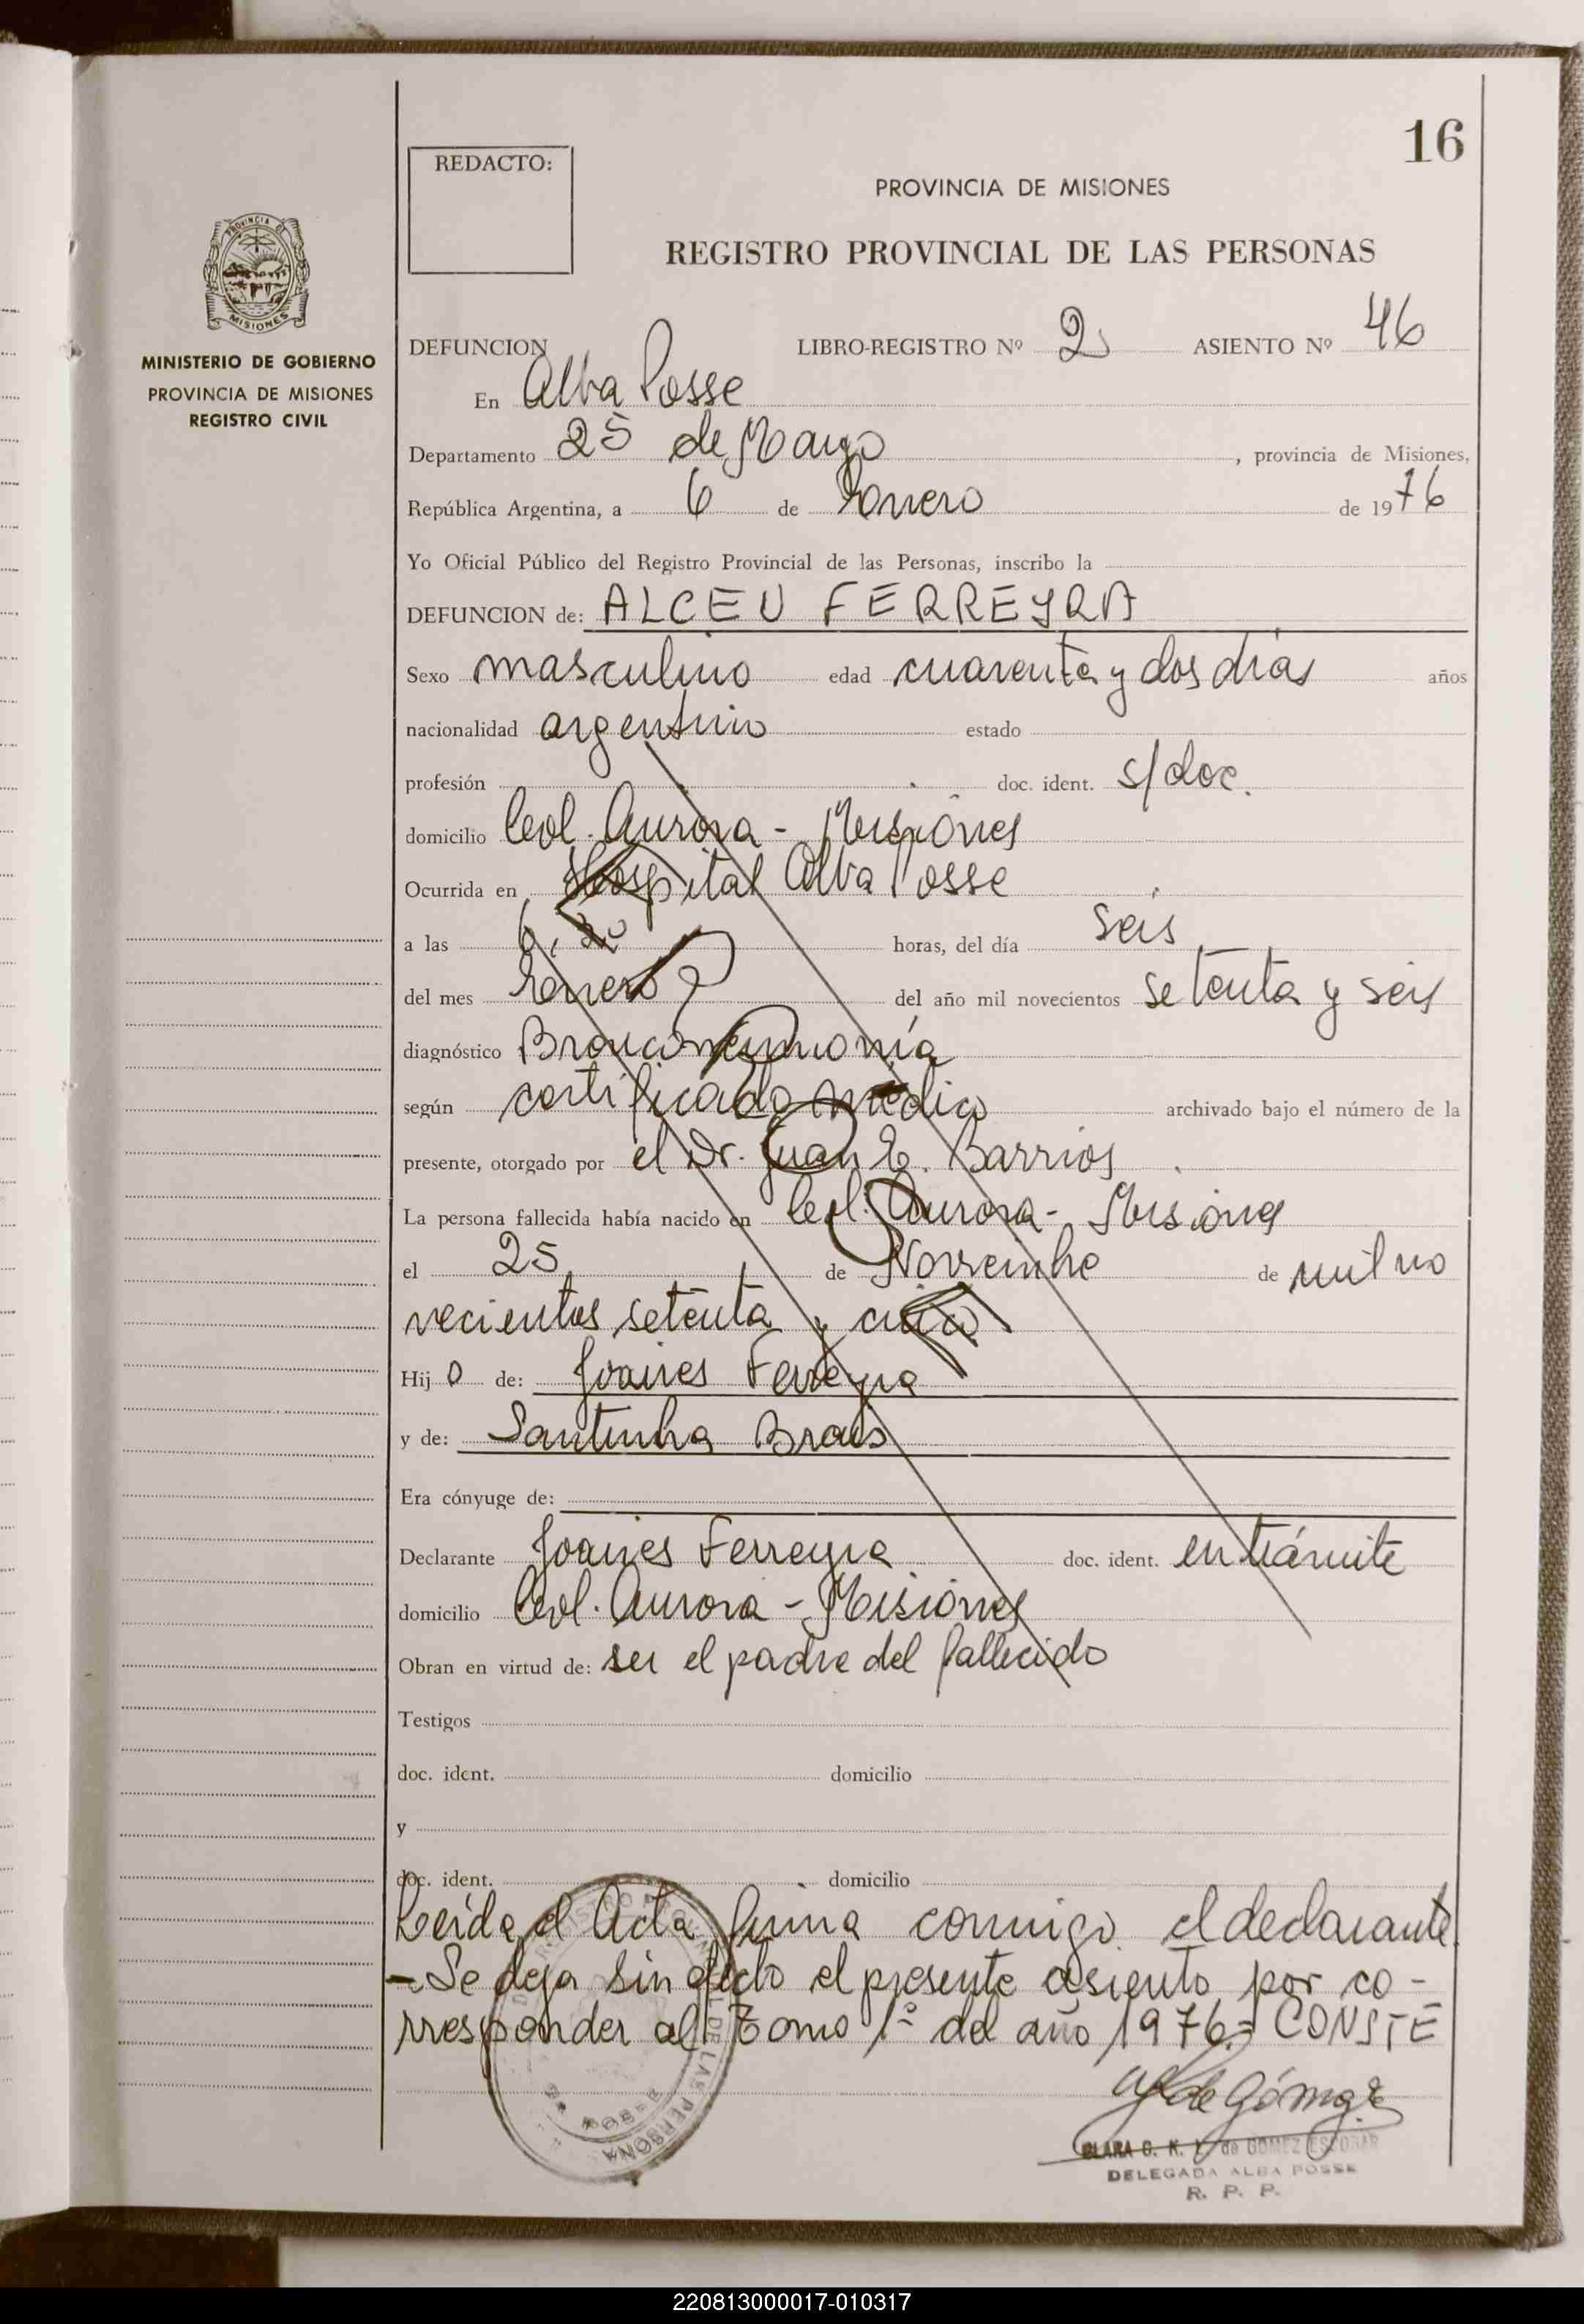 16
REDACTO:
PROVINCIA DE MISIONES
REGISTRO PROVINCIAL DE LAS PERSONAS
MISIONES
MINISTERIO DE GOBIERNO
PROVINCIA DE MISIONES
REGISTRO CIVIL
DEFUNCION LIBRO-REGISTRO Nº 2 ASIENTO Nº 46
En Alba Posse
Departamento 25 de Mayo, provincia de Misiones,
República Argentina, a 6 de Enero de 1976
Yo Oficial Público del Registro Provincial de las Personas, inscribo la
DEFUNCION de: ALCEU FERREYRA
Sexo masculino edad cuarenta y dos días años
nacionalidad argentino estado
profesión doc. ident. s/doc.
domicilio Col. Aurora - Misiones
Ocurrida en Hospital Alba Posse
a las 6, 30 horas, del día seis
del mes Enero del año mil novecientos setenta y seis
diagnóstico Bronconeumonía
según certificado médico archivado bajo el número de la
presente, otorgado por el Dr. Juan E. Barrios
La persona fallecida había nacido en Col. Aurora - Misiones
el 25 de Noviembre de mil no
vecientos setenta y cinco
Hijo de: Joanes Ferreyra
y de: Santinha Brais
Era cónyuge de:
Declarante Joanes Ferreyra doc. ident. en trámite
domicilio Col. Aurora - Misiones
Obran en virtud de: ser el padre del fallecido
Testigos
doc. ident. domicilio
y
doc. ident. domicilio
Leída el Acta firma conmigo el declarante.
- Se deja sin efecto el presente asiento por co-
rresponder al Tomo 1º del año 1976.= CONSTE
de Gómez
CLARA G. K. de GOMEZ ESCOBAR
DELEGADA ALBA POSSE
R. P. P.
220813000017-010317